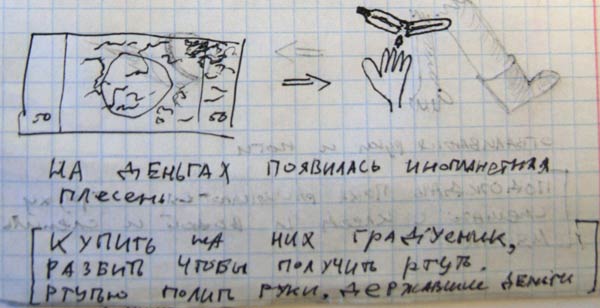 50 50
НА ДЕНЬГАХ ПОЯВИЛАСЬ ИНОПЛАНЕТНАЯ
ПЛЕСЕНЬ
[КУПИТЬ НА НИХ ГРАДУСНИК,
РАЗБИТЬ ЧТОБЫ ПОЛУЧИТЬ РТУТЬ.
РТУТЬЮ ПОЛИТЬ РУКИ, ДЕРЖАВШИЕ ДЕНЬГИ]